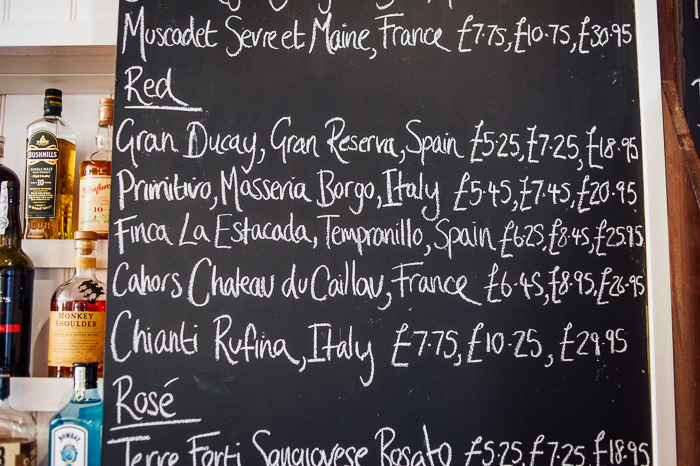 Muscadet Sevre et Maine, France £7.75, £10.75, £30.95
Red
Gran Ducay, Gran Reserva, Spain £5.25, £7.25, £18.95
Primitivo, Masseria Borgo, Italy £5.45, £7.45, £20.95
Finca La Estacada, Tempranillo, Spain £6.25, £8.45, £25.95
Cahors Chateau du Caillau, France £6.45, £8.95, £26.95
Chianti Rufina, Italy £7.75, £10.25, £29.95
Rosé
Terre Forti Sangiovese Rosato £5.25, £7.25, £18.95
BUSHMILLS
10
10
MONKEY
SHOULDER
BOMBAY